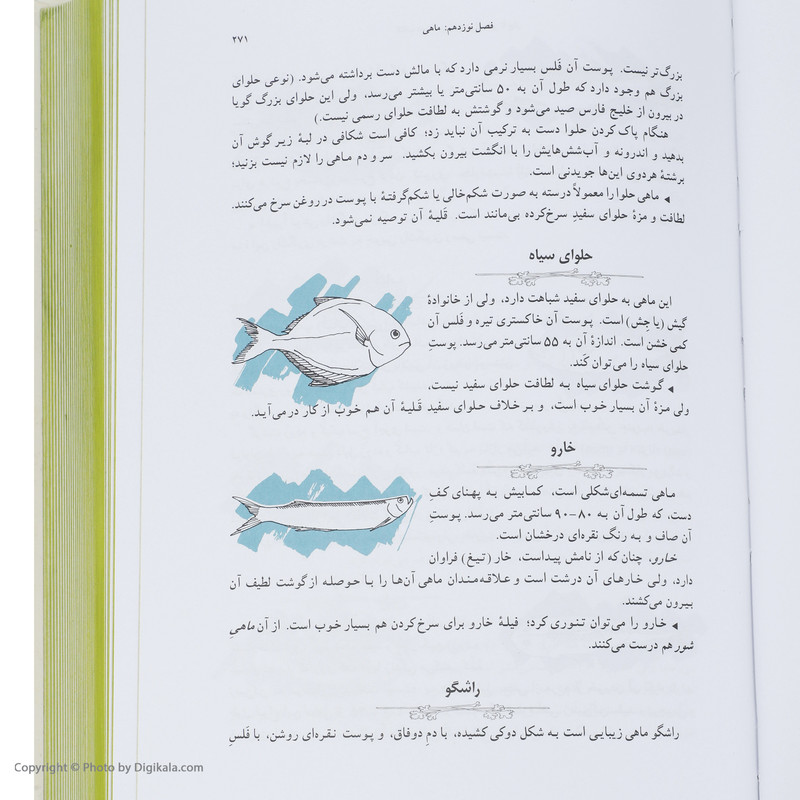 فصل نوزدهم: ماهی
۲۷۱
بزرگ‌تر نیست. پوست آن فَلس بسیار نرمی دارد که با مالش دست برداشته می‌شود. (نوعی حلوای
بزرگ هم وجود دارد که طول آن به ۵۰ سانتی‌متر یا بیشتر می‌رسد، ولی این حلوای بزرگ گویا
در بیرون از خلیج فارس صید می‌شود و گوشتش به لطافت حلوای رسمی نیست.)
هنگام پاک کردن حلوا دست به ترکیب آن نباید زد؛ کافی است شکافی در لبهٔ زیر گوش آن
بدهید و اندرونه و آب‌شش‌هایش را با انگشت بیرون بکشید. سر و دم ماهی را لازم نیست بزنید؛
برشتهٔ هردوی این‌ها جویدنی است.
◂ ماهی حلوا را معمولاً درسته به صورت شکم‌خالی یا شکم‌گرفتهٔ با پوست در روغن سرخ می‌کنند.
لطافت و مزهٔ حلوای سفیدِ سرخ‌کرده بی‌مانند است. قَلیهٔ آن توصیه نمی‌شود.
حلوای سیاه
این ماهی به حلوای سفید شباهت دارد، ولی از خانوادهٔ
گیش (یا جِش) است. پوست آن خاکستری تیره و فَلس آن
کمی خشن است. اندازهٔ آن به ۵۵ سانتی‌متر می‌رسد. پوستِ
حلوای سیاه را می‌توان کَند.
◂ گوشت حلوای سیاه به لطافت حلوای سفید نیست،
ولی مزهٔ آن بسیار خوب است، و بر خلاف حلوای سفید قَلیهٔ آن هم خوب از کار در می‌آید.
خارو
ماهی تسمه‌ای‌شکلی است، کمابیش به پهنای کفِ
دست، که طول آن به ۸۰-۹۰ سانتی‌متر می‌رسد. پوستِ
آن صاف و به رنگ نقره‌ای درخشان است.
خارو، چنان‌که از نامش پیداست، خار (تیغ) فراوان
دارد، ولی خارهای آن درشت است و علاقه‌مندان ماهی آن‌ها را با حوصله از گوشت لطیف آن
بیرون می‌کشند.
◂ خارو را می‌توان تنوری کرد؛ فیلهٔ خارو برای سرخ‌کردن هم بسیار خوب است. از آن ماهیِ
شور هم درست می‌کنند.
راشگو
راشگو ماهی زیبایی است به شکل دوکی کشیده، با دمِ دوفاق، و پوست نقره‌ای روشن، با فَلسِ
Copyright © Photo by Digikala.com